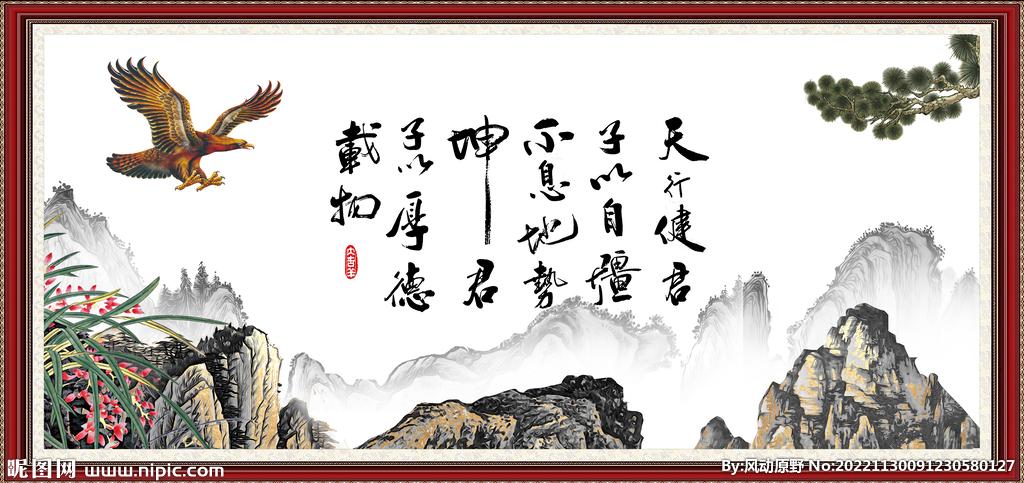 天行健君
子以自疆
不息地勢
坤君
子以厚德
載物
大吉羊
昵图网 www.nipic.com
By:风动原野 No:20221130091230580127